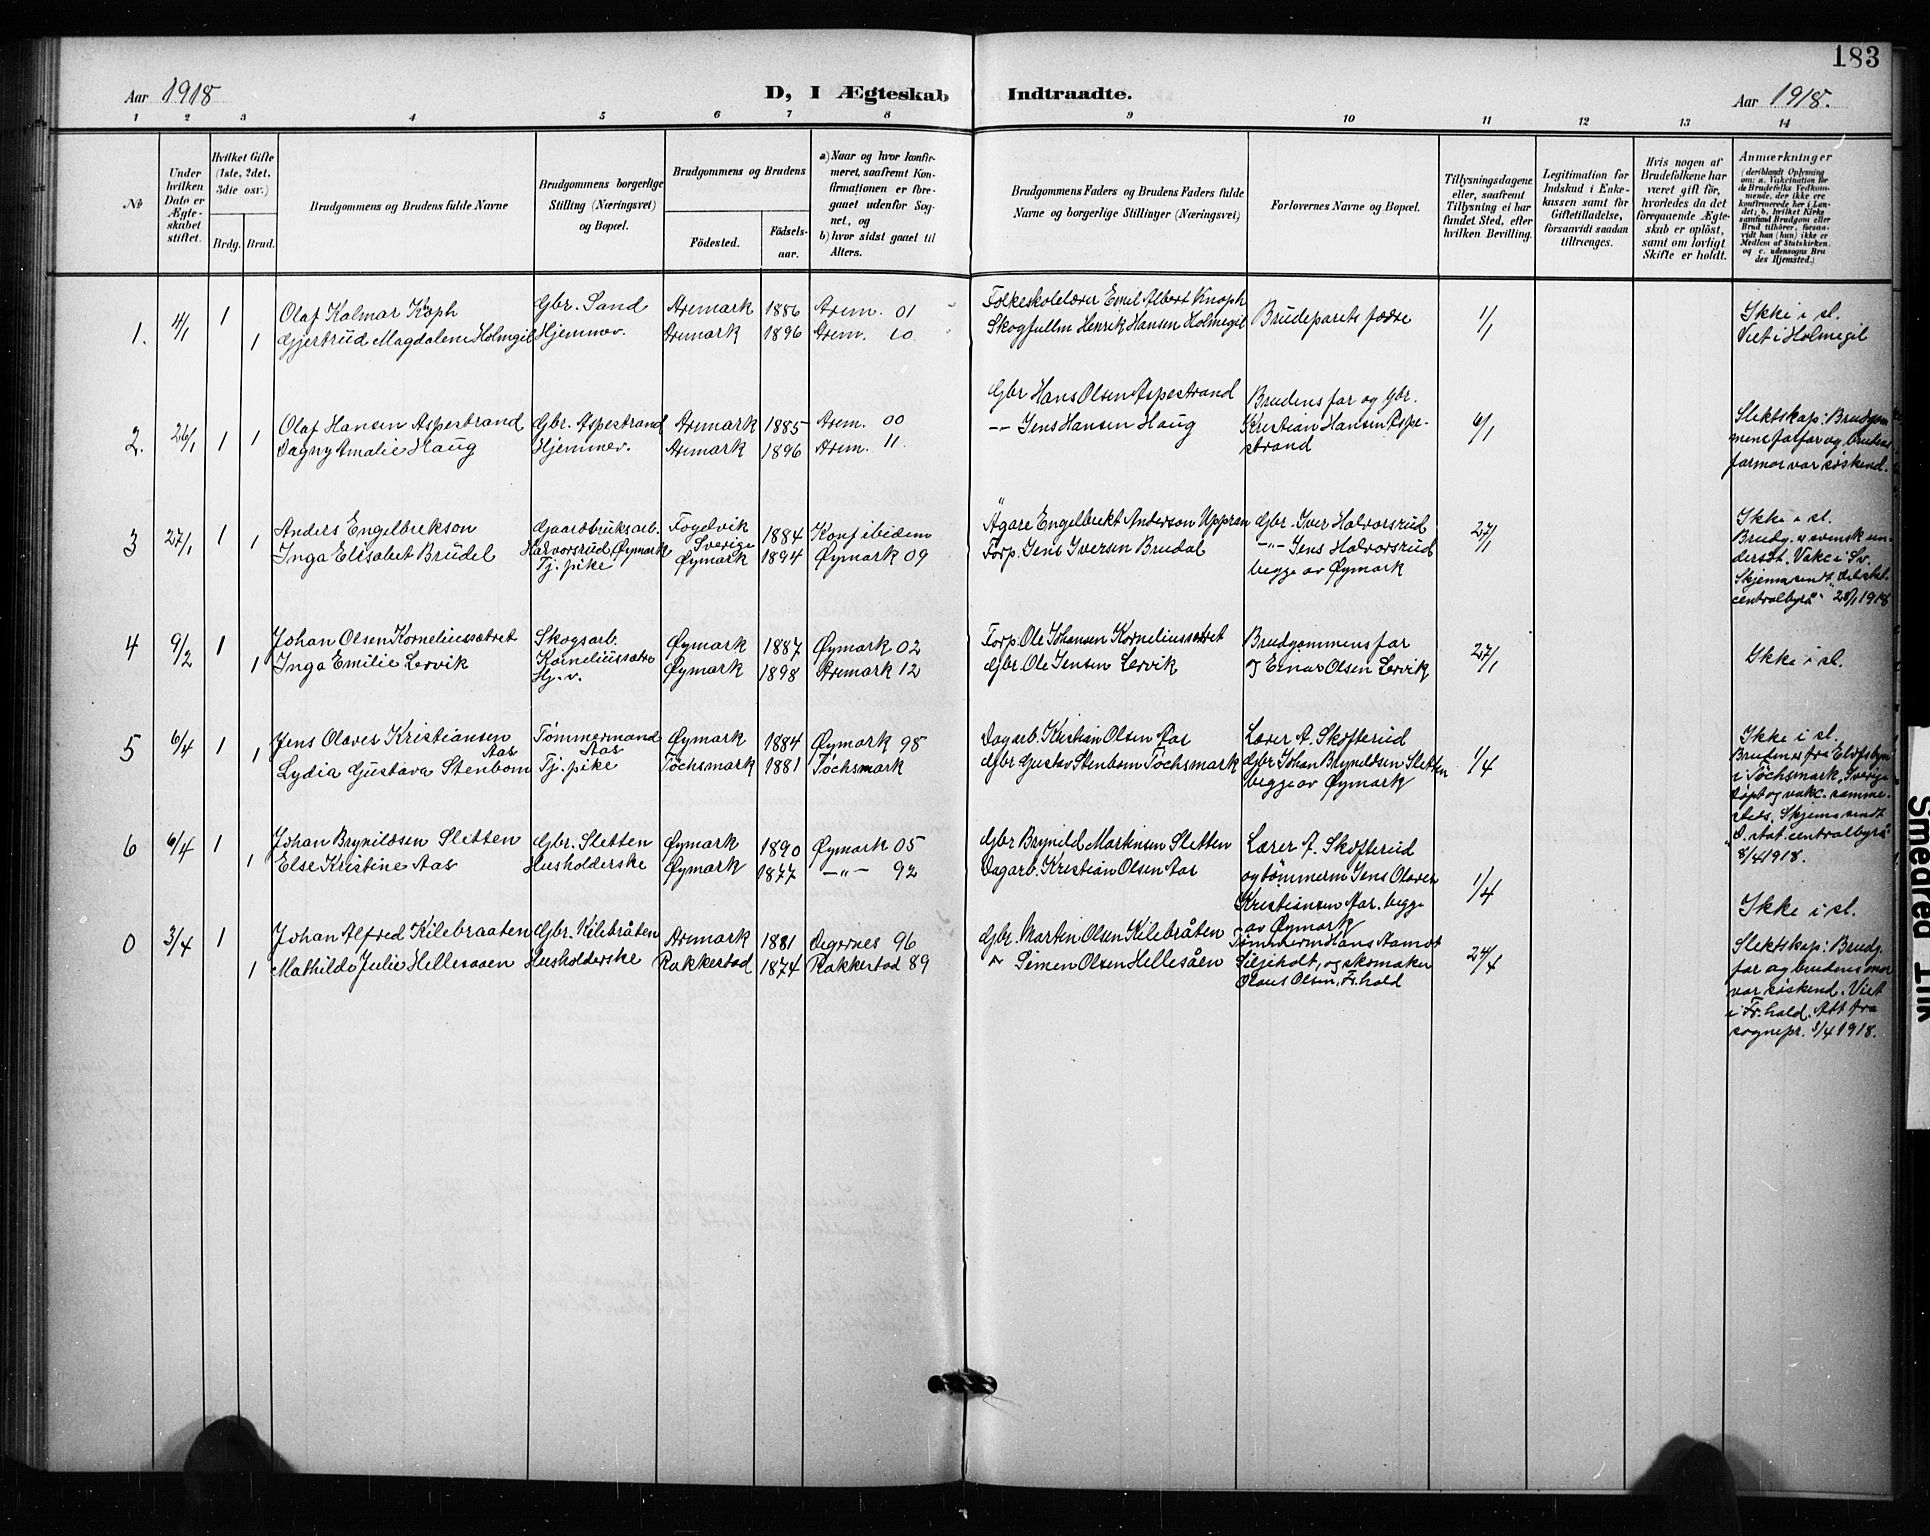 183
Aar 1918
D, I Ægteskab Indtraadte.
Aar 1918.
1 2 3 4 5 6 7 8 9 10 11 12 13 14
No
Under hvilken Dato er Ægteskabet stiftet.
Hvilket Gifte (1ste, 2det, 3die osv.)
Brdg. Brud.
Brudgommens og Brudens fulde Navne
Brudgommens borgerlige Stilling (Næringsvei) og Bopæl.
Brudgommens og Brudens
Fødested. Fødselsaar.
a) Naar og hvor konfirmeret, saafremt Konfirmationen er foregaaet udenfor Sognet, og
b) hvor sidst gaaet til Alters.
Brudgommens Faders og Brudens Faders fulde Navne og borgerlige Stillinger (Næringsvei)
Forlovernes Navne og Bopæl.
Tillysningsdagene eller, saafremt Tillysning ei har fundet Sted, efter hvilken Bevilling.
Legitimation for Indskud i Enkekassen samt for Giftetilladelse, forsaavidt saadan tiltrænges.
Hvis nogen af Brudefolkene har været gift før, hvorledes da det foregaaende Ægteskab er opløst, samt om lovligt Skifte er holdt.
Anmærkninger
(deriblandt Oplysning om: a. Vakcination for de Brudefolks Vedkommende, der ikke ere konfirmerede her i Landet; b. hvilket Kirkesamfund Brudgom eller Brud tilhører, forsaavidt han (hun) ikke er Medlem af Statskirken, og c. udensogns Brudes Hjemsted.)
1. 11/1 1 Olaf Kalmar Knoph Gbr. Sand Aremark 1886 Arem. 01 Folkeskolelærer Emil Albert Knoph Brudeparets fædre 1/1 Ikke i sl.
1 Gjertrud Magdalene Holmgil Hjemmev. Aremark 1896 Arem. 10. Skogfullm Henrik Hansen Holmegil Viet i Holmegil
2. 26/1 1 1 Olaf Hansen Aspestrand Gbr. Aspestrand Aremark 1885 Arem. 00 Gbr Hans Olsen Aspestrand Brudens far og gbr. 6/1 Slektskap: Brudgom
Dagny Amalie Haug Hjemmev. Aremark 1896 Arem. 11. -"- Jens Hansen Haug Kristian Hansen Aspe- mens farfar og brudens
strand farmor var søskend.
3 27/1 1 1 Anders Engelbrekson Gaardbruksarb. Fogelvik 1884 Konf ibidem Ägare Engelbrekt Anderson Uppran Gbr. Iver Halvorsrud 27/1 Ikke i sl.
Inga Elisabet Brudel Halvorsrud, Øymark Sverige -"- Jens Halvorsrud Brudg. er svensk un-
Tj. pike Øymark 1894 Øymark 09 Forp. Jens Iversen Brudal begge av Øymark dersåt. Vakc i Sv.
Skjema sendt "Det stat.
centralbyrå" 28/1 1918
4 9/2 1 Johan Olsen Korneliussætret Skogsarb. Øymark 1887 Øymark 02 Forp. Ole Johansen Korneliussætret Brudgommens far 27/1 Ikke i sl.
1 Inga Emilie Lervik Korneliussætre Øymark 1898 Aremark 12 Gbr Ole Jensen Lervik og Einar Olsen Lervik
Hj. v.
5 6/4 1 1 Jens Olaves Kristiansen Aas Tømmermand Aas Øymark 1884 Øymark 98 Dagarb. Kristian Olsen Aas Lærer A. Skofterud 1/4 Ikke i sl.
Lydia Gustava Stenbom Tj. pike Töchsmark 1881 Töchsmark Gbr Gustav Stenbom Töchsmark Gbr Johan Brynildsen Sletten Bruden er fra Elofsbyn
begge av Øymark i Töchsmark, Sverige
Døpt og vakc. samme-
steds. Skjema sendt
"D. stat. centralbyrå"
8/4 1918.
6 6/4 1 Johan Brynildsen Sletten Gbr. Sletten Øymark 1890 Øymark 05 Gbr Brynild Martinsen Sletten Lærer A. Skofterud 1/4
1 Else Kristine Aas Husholderske Øymark 1877 -"- 92 Dagarb. Kristian Olsen Aas og tømmerm Jens Olaves
Kristiansen Aas. begge
av Øymark Ikke i sl.
0 3/4 1 Johan Alfred Kilebraaten Gbr. Kilebråten Aremark 1881 Degernes 96 Gbr. Martin Olsen Kilebråten Tømmerm Hans Aamot 24/4 Slektskap: Brudg.
1 Mathilde Julie Hellesaaen Husholderske Rakkestad 1874 Rakkestad 89 " Simen Olsen Hellesåen Siljeholt, og skomaker far og brudens mor
Olaus Olsen, Fr.hald var søskend. Viet
i Fr.hald. Att fra
sognepr. 3/4 1918.